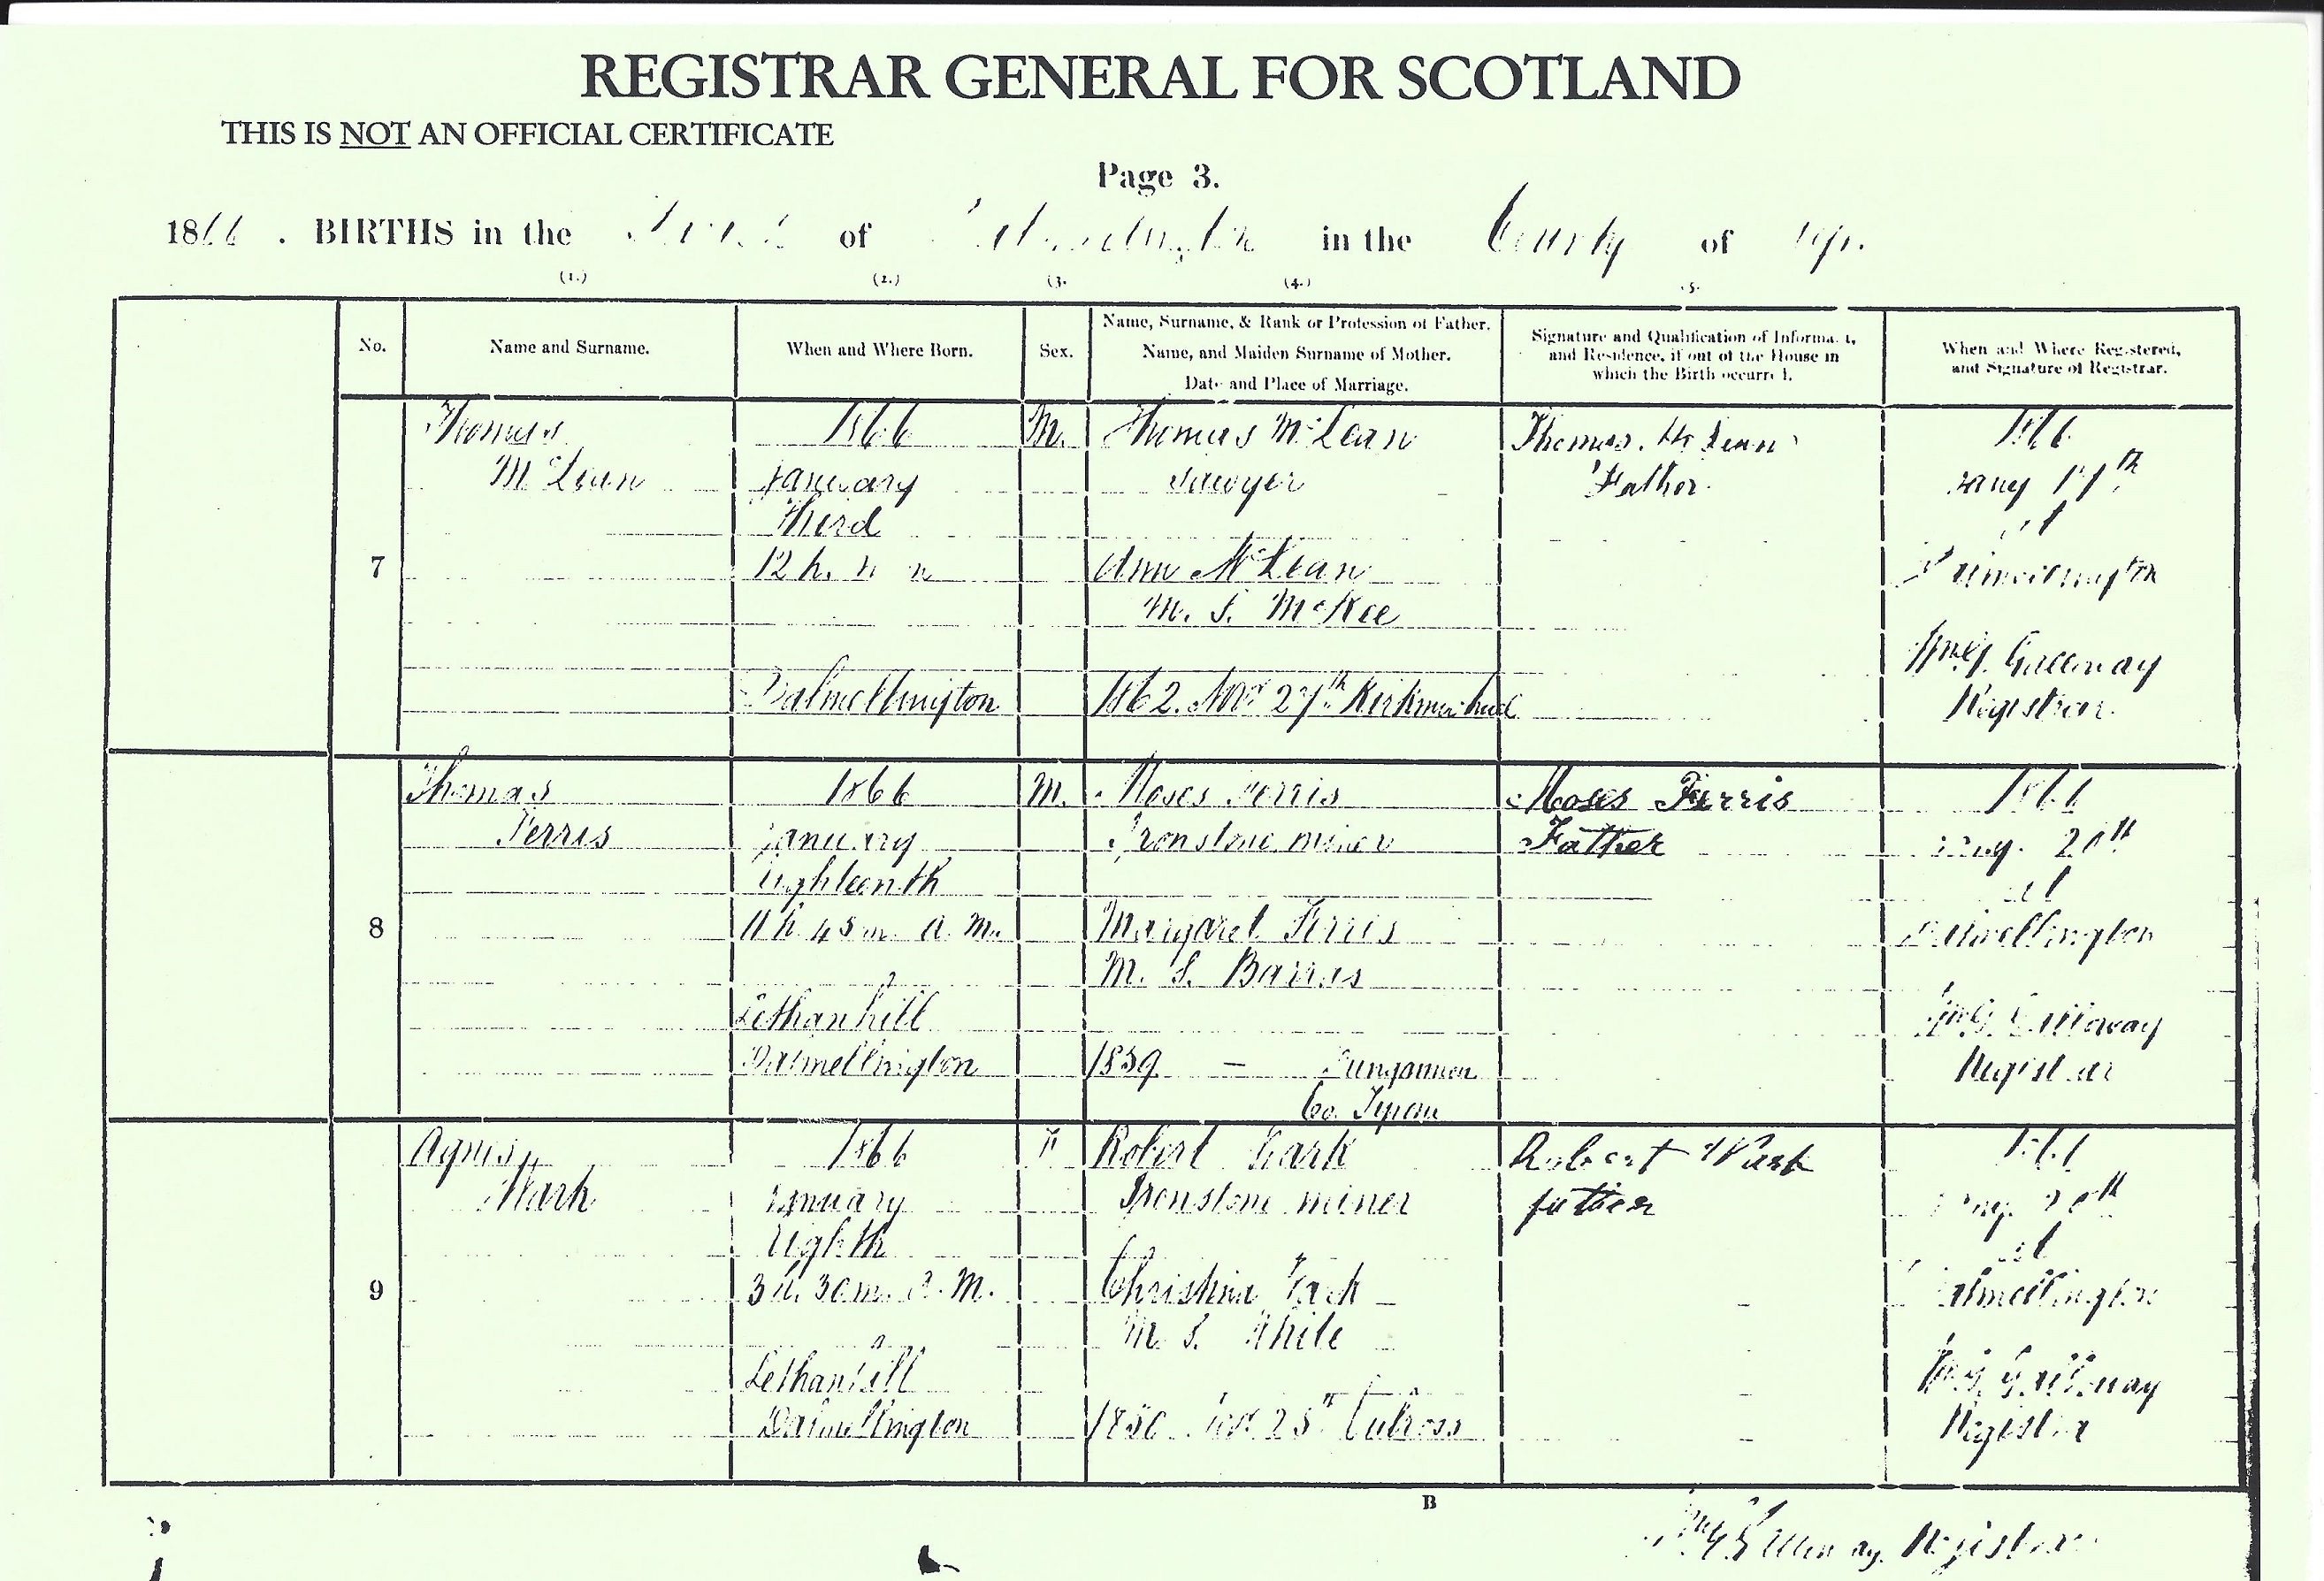 REGISTRAR GENERAL FOR SCOTLAND
THIS IS NOT AN OFFICIAL CERTIFICATE
Page 3.
1866. BIRTHS in the of in the County of Ayr.
(1.) (2.) (3. (4.) .5.
No.
Name and Surname.
When and Where Born.
Sex.
Name, Surname, & Rank or Profession of Father.
Name, and Maiden Surname of Mother.
Date and Place of Marriage.
Signature and Qualification of Informant,
and Residence, if out of the House in
which the Birth occurred.
When and Where Registered,
and Signature of Registrar.
7
Thomas
McLean
1866
January
Third
12 h.
Dalmellington
M.
Thomas McLean
Sawyer
Ann McLean
M. S. McKee
1862. Novr 27th Kirkmichael
Thomas McLean
Father
1866
Jany 17th
at
Dalmellington
Wm G. Galloway
Registrar.
8
Thomas
Ferris
1866
January
Eighteenth
11 h. 45 m. A. M.
Lethanhill
Dalmellington
M.
Moses Ferris
Ironstone miner
Margaret Ferris
M. S. Barras
1859 — Dungannon
Co. Tyrone
Moses Ferris
Father
1866
Jany. 20th
at
Dalmellington
Wm G. Galloway
Registrar
9
Agnes
1866
January
Eighth
3 h. 30 m. M.
Lethanhill
Dalmellington
F
Robert
Ironstone miner
Christina
M. S. White
1850 25th Culross
Robert
father
1866
Jany. 20th
at
Dalmellington
Wm G. Galloway
Registrar
B
Wm G Galloway, Registrar